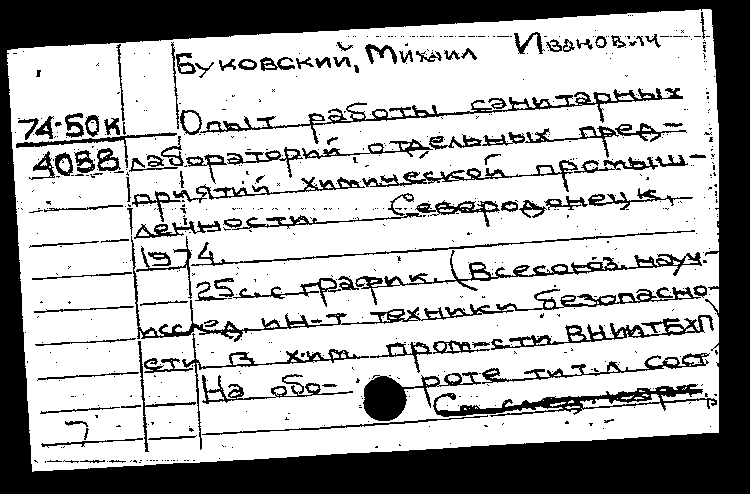 Буковский, Михаил Иванович
74-50к Опыт работы санитарных
4088 лабораторий, отдельных пред-
приятий химической промыш-
ленности. Северодонецк,
1974.
25с. с график. (Всесоюз. науч.-
исслед. ин-т техники безопасно-
сти в хим. пром-сти. ВНИИТБХП)
На обороте тит. л. сост.
См. след. карт.
7